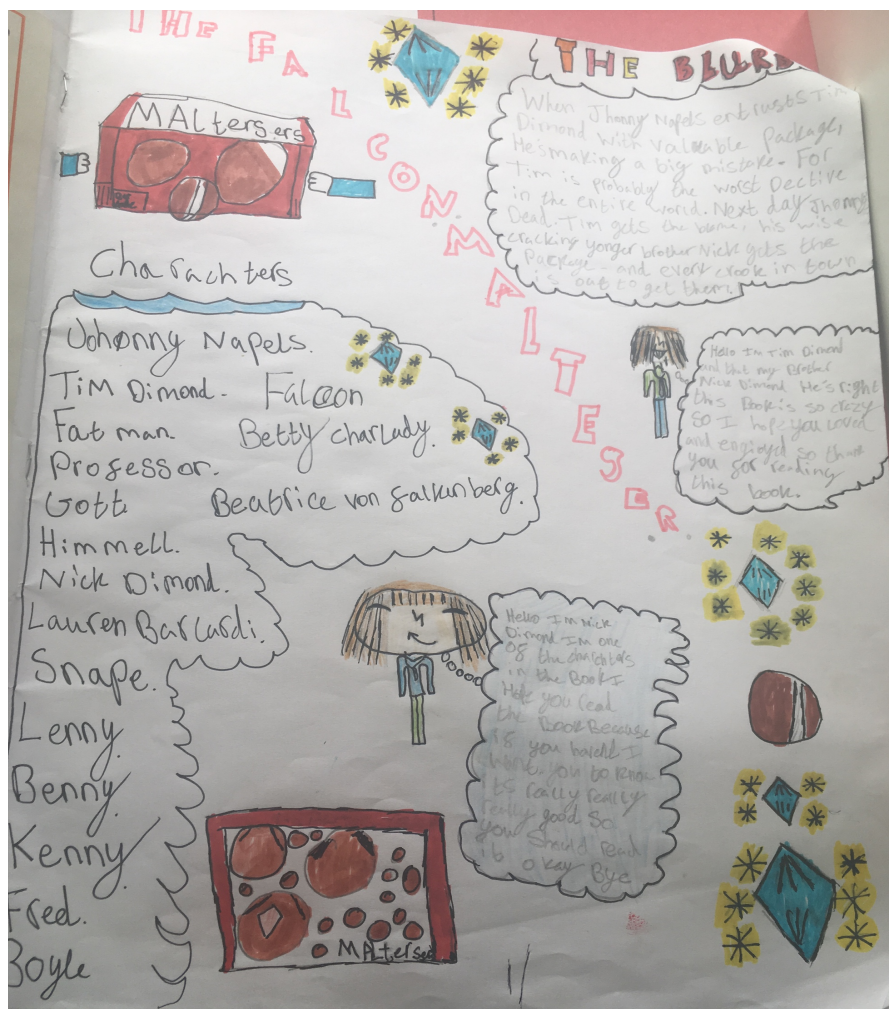 THE FALCON MALTESER
MALtersers
THE BLURB
When Jhonny Napels entrusts Tim
Dirmond with Valuable Package,
He's making a big mistake. For
Tim is Probably the worst Dective
in the entire world. Next day Jhonny
Dead. Tim gets the blame, his wise
cracking yonger brother Nick gets the
Package - and every crook in town
is out to get them.
Charachters
Johonny Napels.
Tim Dimond. Falcon
Fat man. Betty Charlady.
Professor.
Gott Beatrice von falkunberg.
Himmell.
Nick Dimond.
Lauren Barcardi.
Snape.
Lenny
Benny
Kenny
Fred.
Boyle
Hello Im Tim Dimond
and that my Brother
Nick Dimond He's right
this Book is so crazy
so I hope you loved
and engioyd so thank
you for reading
this book.
Hello Im Nick
Dimond Im one
of the charchters
in the Book I
Hope you read
the Book Because
if you havent I
want you to know
its really really
really good so
you should read
it okay Bye
MALterser